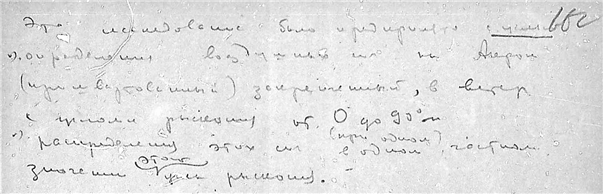 Это исследование было предпринято с целью 162
1). определения воздушных сил на Аэрон
(пришвартованный) закрепленный, в ветер
с углами рыскания от 0 до 90° и
2) распределения этих сил (при одном) в одном частном
значении этого угла рыскания.